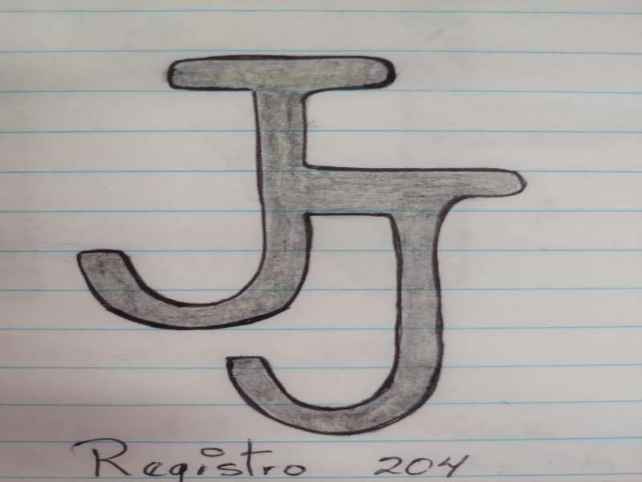 JJ
Registro 204